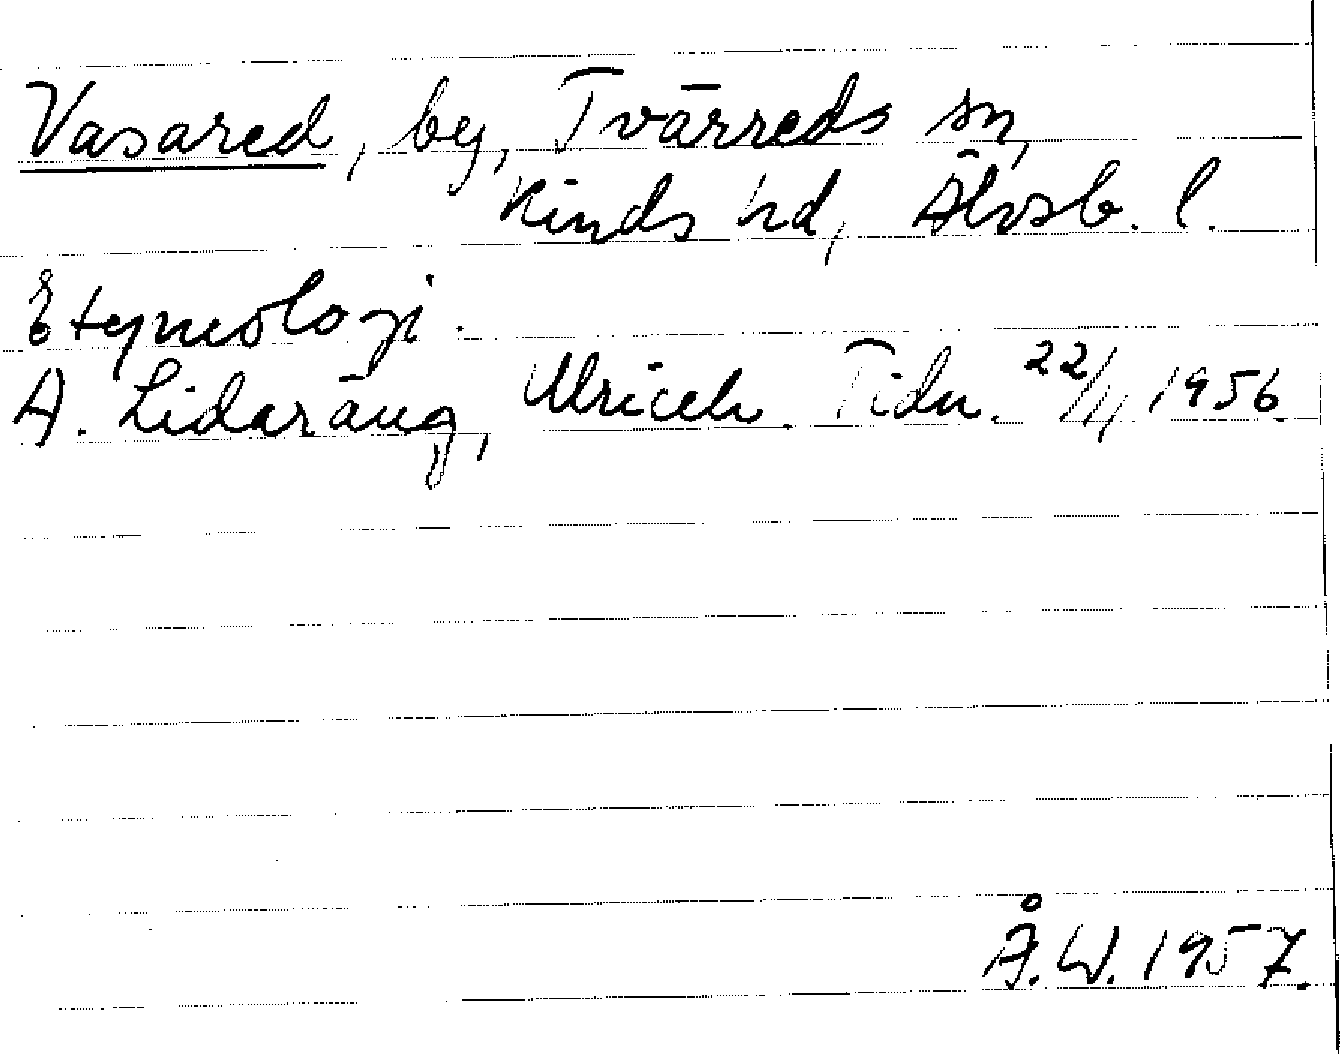 Vasared, by, Tvärreds sn,
Kinds hd, Älvsb. l.
Etymologi.
A. Lidaräng, Ulriceh. Tidn. 22/11 1956.
Å.W. 1957.